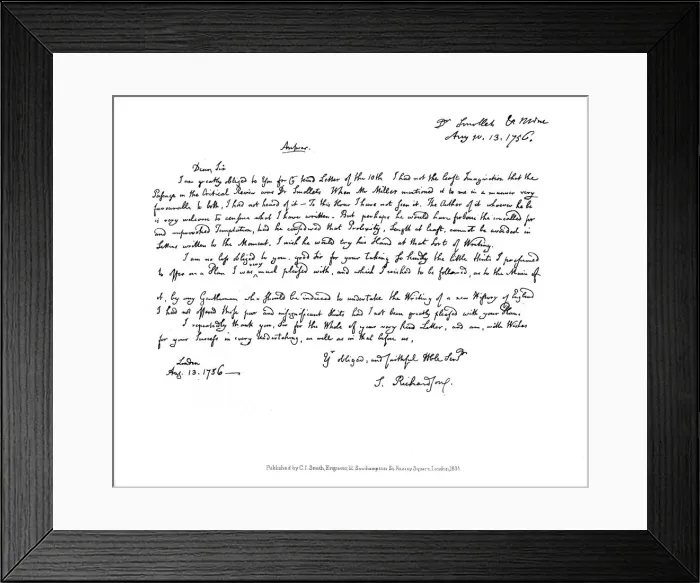 Dr Smollet & Mine
Aug st. 13. 1756.
Answer.
Dear Sir
I am greatly obliged to You for kind Letter of the 10th I had not the least Imagination that the
Passage in the Critical Review was Dr Smollets When Mr Millar mentioned it to me in a manner very
favourable to both, I had not heard of it — To this Hour I have not seen it. The Author of it whoever he be
is very welcome to censure what I have written. But perhaps he would have forborn the uncalled for
and unprovoked Temptation, had he considered that Prolixity, Length at least, cannot be avoided in
Letters written to the Moment. I wish he would try his Hand at that sort of Writing.
I am no less obliged to you, good Sir for your taking so kindly the little Hints I presumed
to offer on a Plan I was very much pleased with, and which I wished to be followed, as to the Music of
it, by any Gentleman who should be induced to undertake the Writing of a new History of England
I had not offered those poor and insignificant Hints had I not been greatly pleased with your Plan.
I repeatedly thank you, Sir for the Whole of your very kind Letter, and am, with Wishes
for your Success in every Undertaking, as well as in that before us,
Yr obliged, and faithful Hble Servt
London
Aug. 13. 1756 —
S. Richardson.
Published by C.J. Smith, Engraver, Southampton St, Euston Square, London, 1835